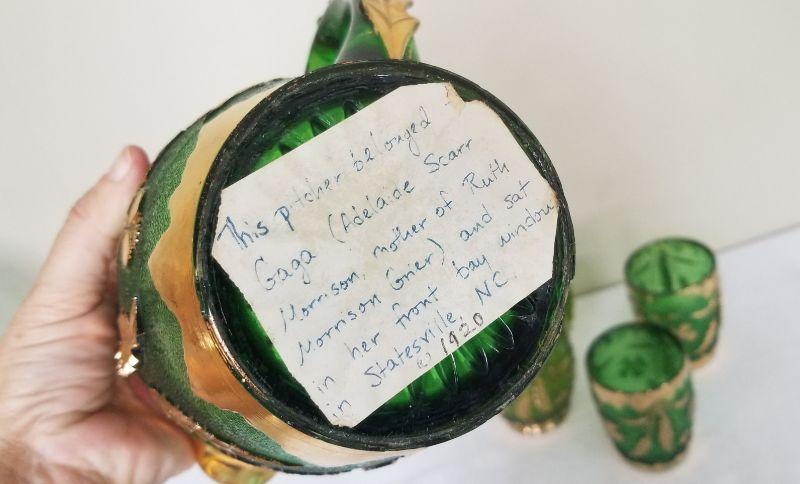 This pitcher belonged -
Gaga (Adelaide Scarr
Morrison, mother of Ruth
Morrison Grier) and sat
in her front bay window
in Statesville, NC.
(c) 1920